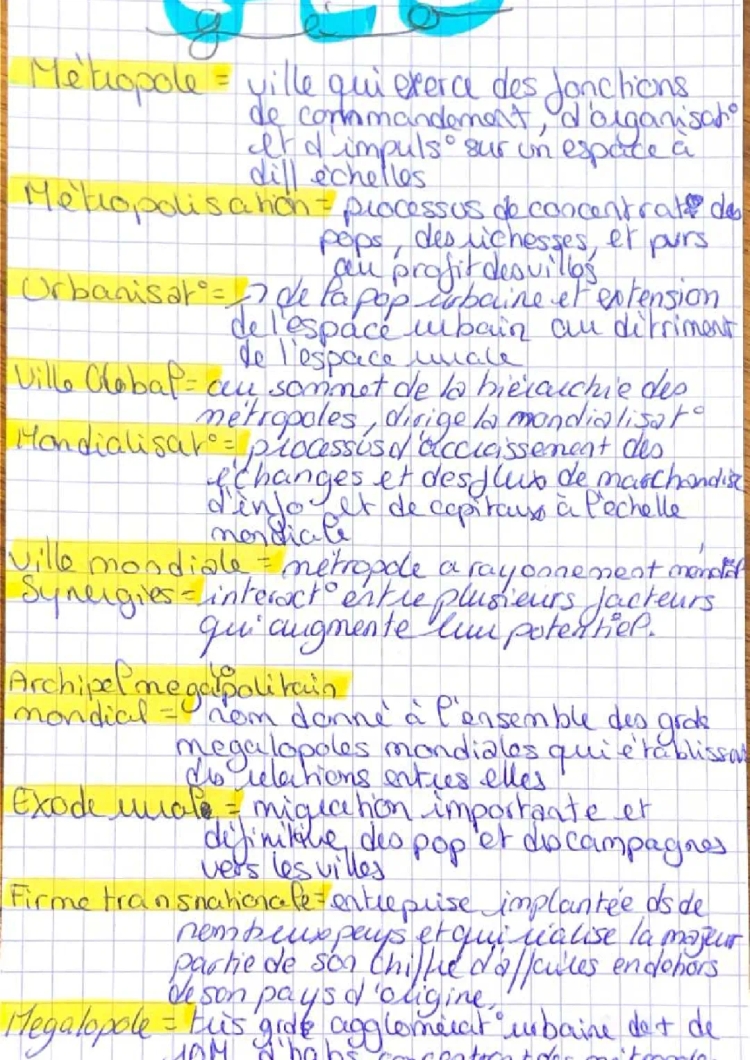 géo
Métropole = ville qui exerce des fonctions
de commandement, d'organisat°
et d'impuls° sur un espace à
diff échelles
Métropolisation = processus de concentrat° des
pops, des richesses, et pvrs
au profit des villes
Urbanisat° = ↗ de la pop urbaine et extension
de l'espace urbain au détriment
de l'espace rurale
Ville Global = au sommet de la hiérarchie des
métropoles, dirige la mondialisat°
Mondialisat° = processus d'accroissement des
échanges et des flux de marchandise
d'info et de capitaux à l'échelle
mondiale
Ville mondiale = métropole a rayonnement mondial
Synergies = interact° entre plusieurs facteurs
qui augmente leur potentiel.
Archipel mégalopolitain
mondial = nom donné à l'ensemble des grde
megalopoles mondiales qui établissent
des relations entres elles
Exode rurale = migration importante et
définitive des pop et des campagnes
vers les villes
Firme transnationale = entreprise implantée ds de
nombreux pays et qui réalise la majeur
partie de son chiffre d'affaires en dehors
de son pays d'origine.
Megalopole = très grde agglomérat° urbaine de + de
10M d'habs